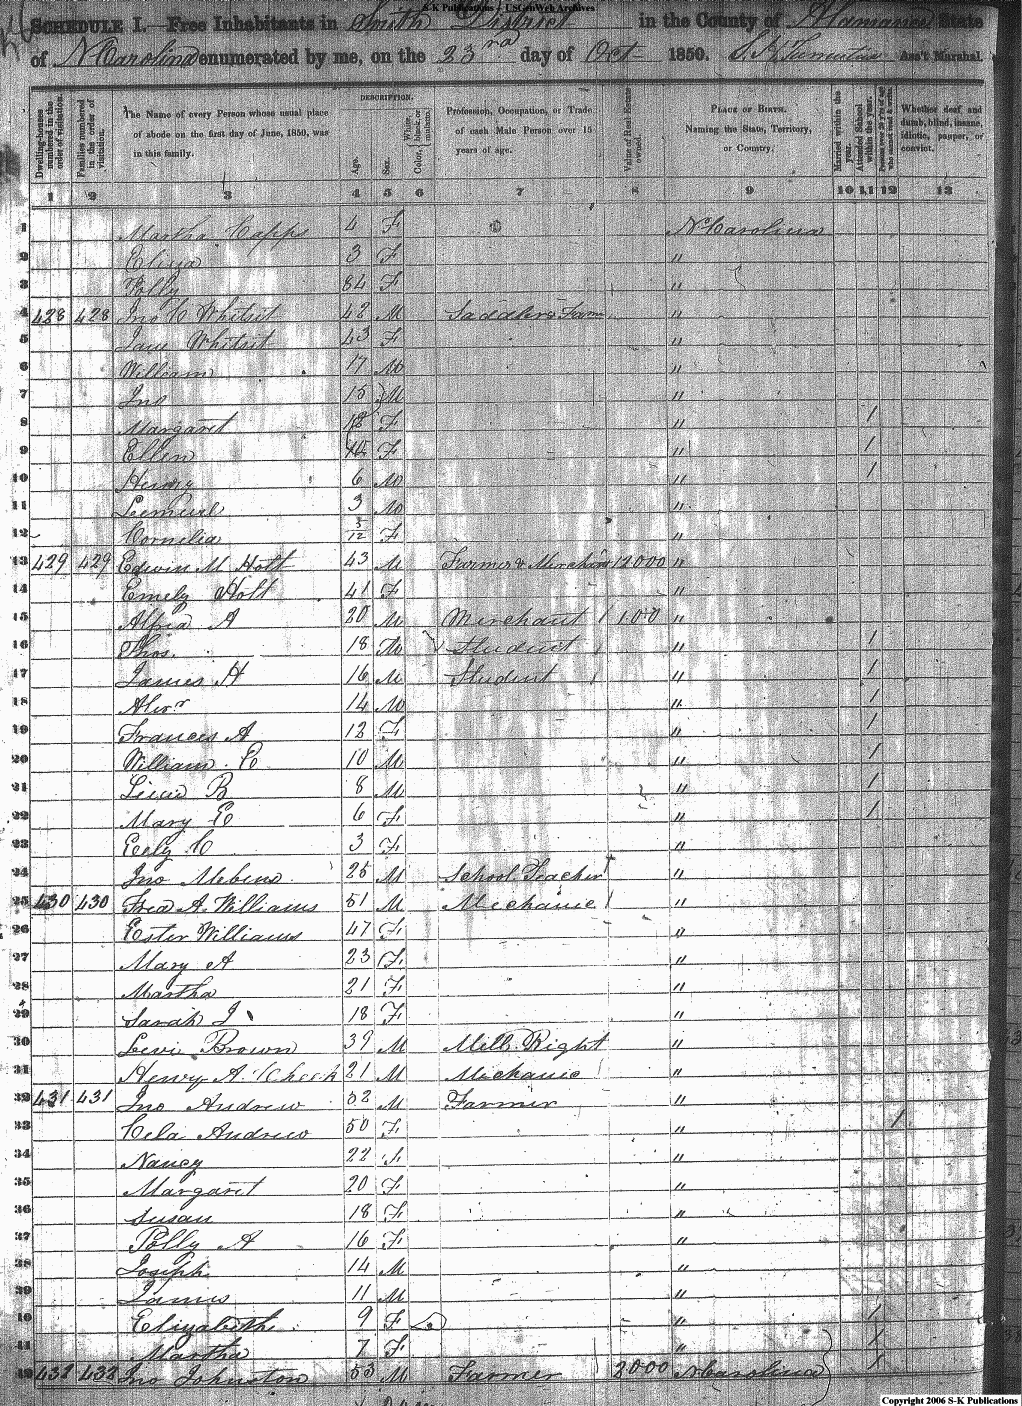 S-K Publications - USGenWeb Archives
SCHEDULE I.—Free Inhabitants in Smith District in the County of Alamance State
of N Carolina enumerated by me, on the 23rd day of Oct 1850. Ass't Marshal.
Dwelling-houses numbered in the order of visitation.
Families numbered in the order of visitation.
The Name of every Person whose usual place of abode on the first day of June, 1850, was in this family.
DESCRIPTION.
Age.
Sex.
Color, White, black, or mulatto.
Profession, Occupation, or Trade of each Male Person over 15 years of age.
Value of Real Estate owned.
PLACE OF BIRTH. Naming the State, Territory, or Country.
Married within the year.
Attended School within the year.
Persons over 20 y'rs of age who cannot read & write.
Whether deaf and dumb, blind, insane, idiotic, pauper, or convict.
1 2 3 4 5 6 7 8 9 10 11 12 13
1 Martha Capps 4 F N Carolina
2 Eliza 3 F "
3 Polly 84 F "
4 428 428 Jno C Whitsit 42 M "
5 Jane Whitsit 43 F "
6 William 17 M "
7 Jno 15 M "
8 Margaret F " 1
9 Ellen F " 1
10 Henry 6 M " 1
11 Lemuel 3 M "
12 Cornelia 3/12 F "
13 429 429 Edwin M Holt 43 M Farmer & Merchant 12000 "
14 Emely Holt 41 F "
15 Alfred A 20 M Merchant 100 "
16 Thos. 18 M Student " 1
17 James H 16 M Student " 1
18 Alexr 14 M " 1
19 Frances A 12 F " 1
20 William E 10 M " 1
21 B 8 M " 1
22 Mary E 6 F " 1
23 C 3 F "
24 Jno Mebane 25 M School Teacher "
25 430 430 A. Williams 51 M Mechanic "
26 Ester Williams 47 F "
27 Mary A 23 F "
28 Martha 21 F "
29 Sarah J 18 F "
30 Levi Brown 39 M Mill Right "
31 Henry A. Cheek 21 M Mechanic "
32 431 431 Jno Andrew 52 M Farmer "
33 Cela Andrew 50 F " 1
34 Nancy 22 F "
35 Margaret 20 F "
36 Susan 18 F "
37 Polly A 16 F "
38 Joseph 14 M "
39 James 11 M "
40 Elizabeth 9 F " 1
41 Martha 7 F " 1
42 432 432 Jno Johnston 53 M Farmer 2000 N Carolina 1
Copyright 2006 S-K Publications